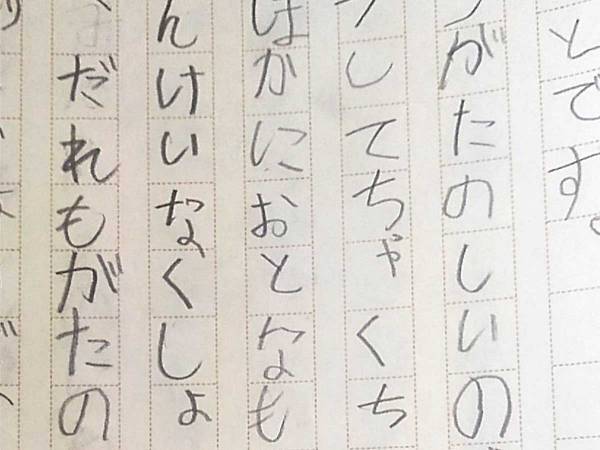 とです。
がたのしいの
してちゃくち
かにおとなも
んけいなくしょ
だれもがたの